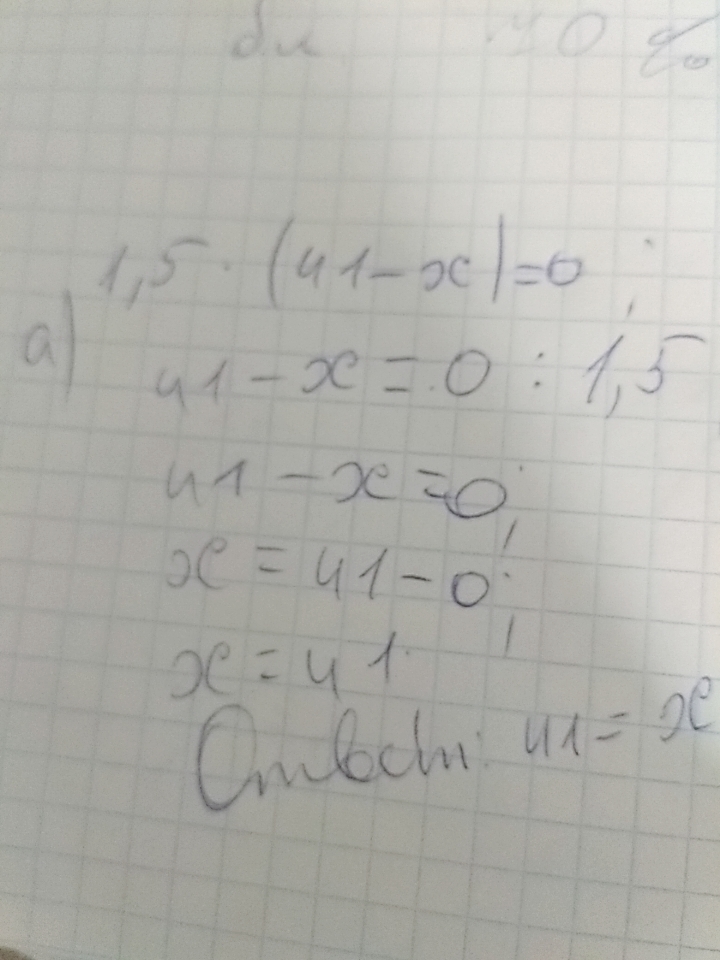 1,5 · (41 - x) = 0;
а)
41 - x = 0 : 1,5
41 - x = 0;
x = 41 - 0;
x = 41.
Ответ: 41 = x